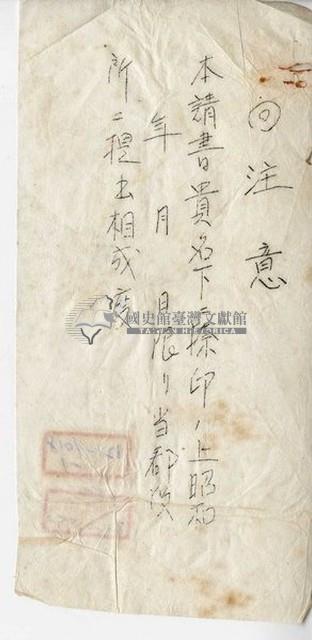 御注意
本請書貴名下ニ捺印ノ上昭和
年 月 日限リ当郡役
所ニ提出相成度
國史館臺灣文獻館
TAIWAN HISTORICA